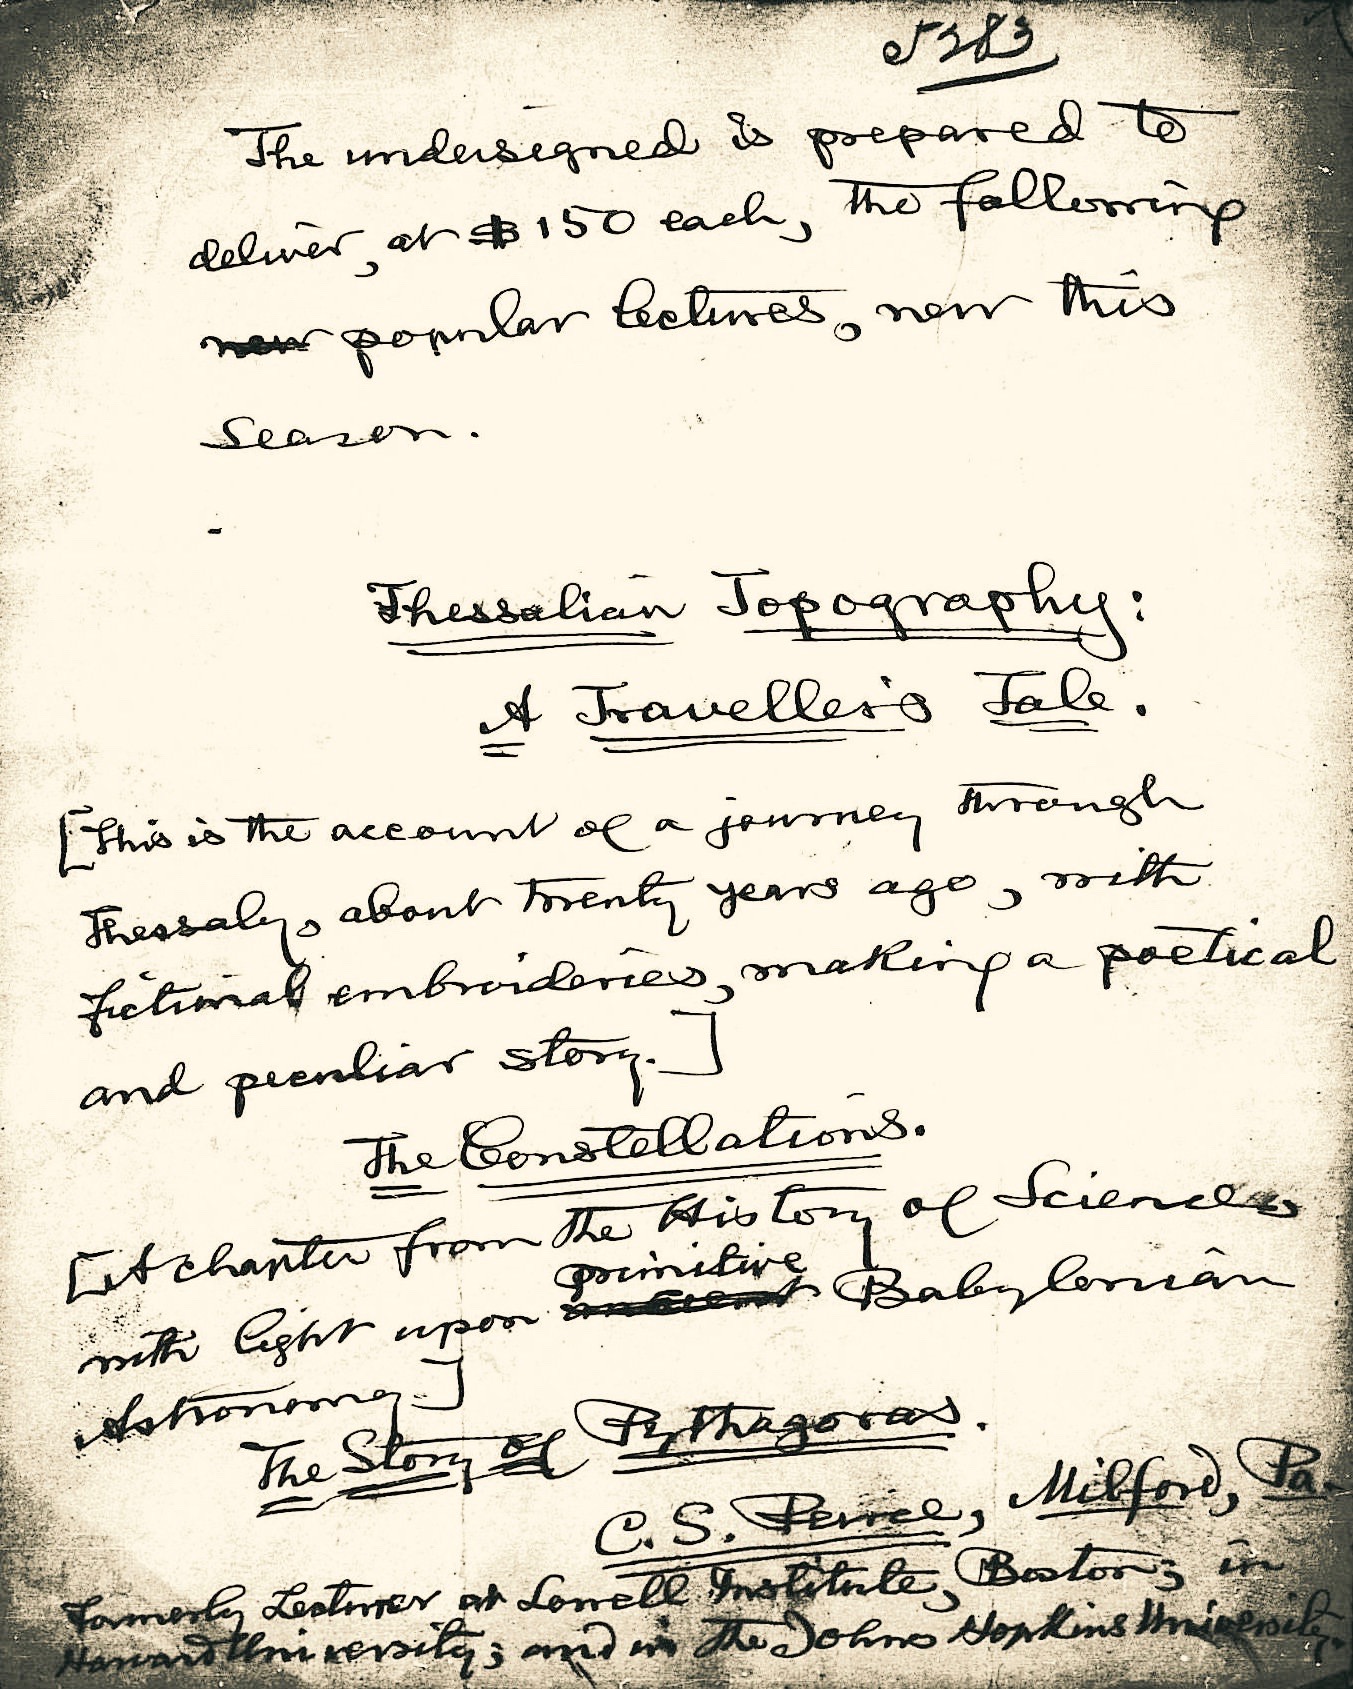 The undersigned is prepared to
deliver, at $150 each, the following
new popular lectures, new this
season.
Thessalian Topography:
A Traveller's Tale.
[This is the account of a journey through
Thessaly, about twenty years ago, with
fictional embroideries, making a poetical
and peculiar story.]
The Constellations.
[A chapter from the History of Science,
primitive
with light upon ancient Babylonian
Astronomy.]
The Story of Pythagoras.
C. S. Peirce, Milford, Pa.
Formerly Lecturer at Lowell Institute, Boston; in
Harvard University; and in the Johns Hopkins University.